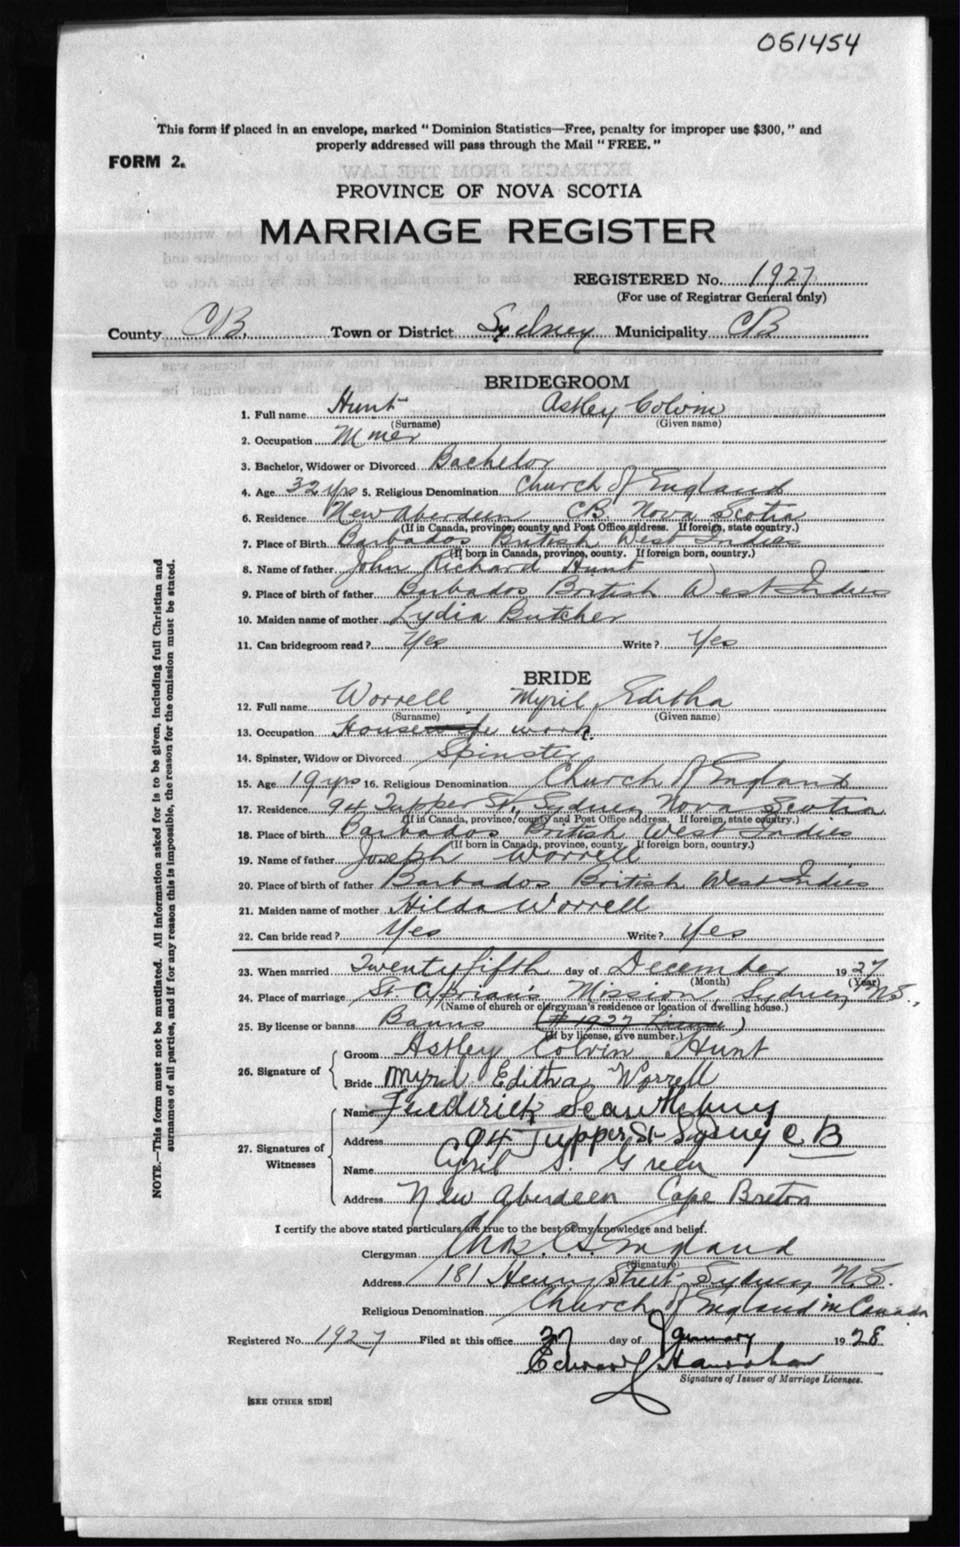 051454
This form if placed in an envelope, marked "Dominion Statistics—Free, penalty for improper use $300," and
properly addressed will pass through the Mail "FREE."
FORM 2.
PROVINCE OF NOVA SCOTIA
MARRIAGE REGISTER
REGISTERED No. 1927
(For use of Registrar General only)
County CB. Town or District Sydney Municipality CB
BRIDEGROOM
1. Full name Hunt Astley Colvin
(Surname) (Given name)
2. Occupation Miner
3. Bachelor, Widower or Divorced Bachelor
4. Age 32 yrs 5. Religious Denomination Church of England
6. Residence New Aberdeen CB. Nova Scotia
(If in Canada, province, county and Post Office address. If foreign, state country.)
7. Place of Birth Barbados British West Indies
(If born in Canada, province, county. If foreign born, country.)
8. Name of father John Richard Hunt
9. Place of birth of father Barbados British West Indies
10. Maiden name of mother Lydia Butcher
11. Can bridegroom read? Yes Write? Yes
BRIDE
12. Full name Worrell Myril Editha
(Surname) (Given name)
13. Occupation Housewife work.
14. Spinster, Widow or Divorced Spinster
15. Age 19 yrs 16. Religious Denomination Church of England
17. Residence 94 Tupper St, Sydney Nova Scotia
(If in Canada, province, county and Post Office address. If foreign, state country.)
18. Place of birth Barbados British West Indies
(If born in Canada, province, county. If foreign born, country.)
19. Name of father Joseph Worrell
20. Place of birth of father Barbados British West Indies
21. Maiden name of mother Hilda Worrell
22. Can bride read? Yes Write? Yes
23. When married Twentyfifth day of December 1927
(Month) (Year)
24. Place of marriage St Cyprian's Mission, Sydney, N.S.,
(Name of church or clergyman's residence or location of dwelling house.)
25. By license or banns Banns (# 1927 License)
(If by license, give number.)
26. Signature of Groom Astley Colvin Hunt
Bride Myril Editha Worrell
27. Signatures of Witnesses
Name Frederick
Address 94 Tupper St Sydney C B
Name Cyril S. Green
Address New Aberdeen Cape Breton
I certify the above stated particulars are true to the best of my knowledge and belief.
Clergyman Chas. England
(Signature)
Address 181 Henry Street Sydney N.S.
Religious Denomination Church of England in Canada
Registered No. 1927 Filed at this office 27 day of January 1928
Edward
Signature of Issuer of Marriage Licenses.
[SEE OTHER SIDE]
NOTE.—This form must not be mutilated. All information asked for is to be given, including full Christian and
surnames of all parties, and if for any reason this is impossible, the reason for the omission must be stated.